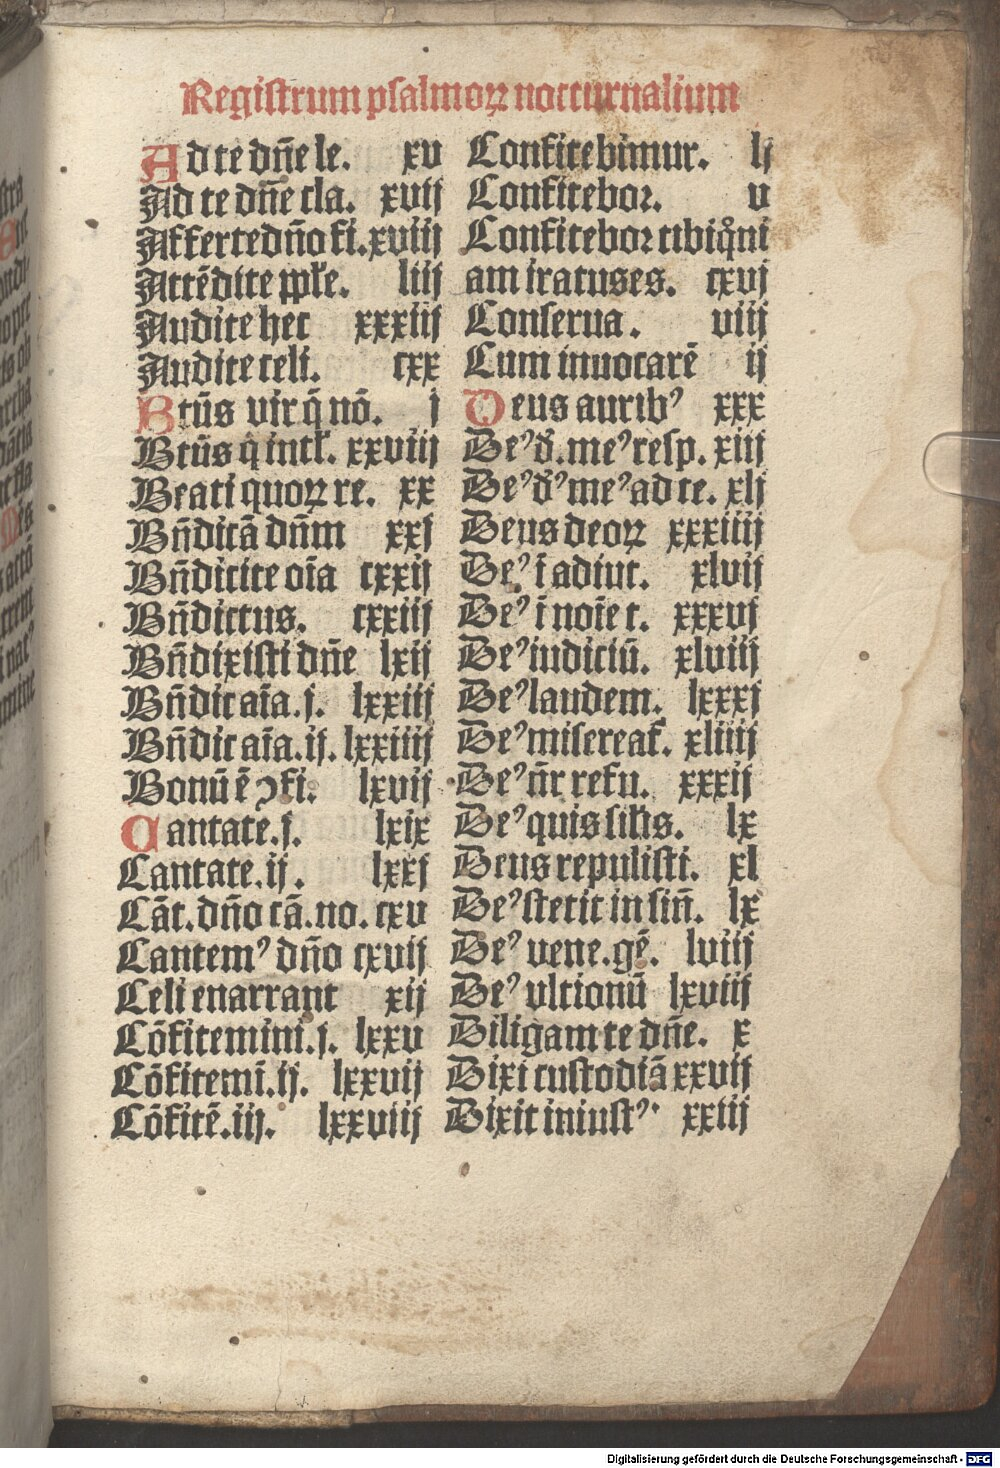 Registrum psalmoꝝ nocturnalium
Ad te dn̄e le. xv
Ad te dn̄e cla. xvij
Afferte dn̄o fi. xviij
Attēdite ple. liij
Audite hec xxxiij
Audite celi. cxx
Btūs vir q̄ nō. j
Btūs q̄ intl. xxviij
Beati quoꝝ re. xx
Bn̄dicā dn̄m xxj
Bn̄dicite oīa cxxij
Bn̄dictus. cxxiij
Bn̄dixisti dn̄e lxij
Bn̄dic aīa. j. lxxiij
Bn̄dic aīa. ij. lxxiiij
Bonū ē ꝯfi. lxvij
Cantate. j. lxix
Cantate. ij. lxxj
Cāt. dn̄o cā. no. cxv
Cantemꝰ dn̄o cxvij
Celi enarrant xij
Cōfitemini. j. lxxv
Cōfitemī. ij. lxxvij
Cōfitē. iij. lxxviij
Confitebimur. lj
Confitebor. v
Confitebor tibi qm̄
am iratus es. cxvj
Conserua. viij
Cum inuocarē ij
Deus auribꝰ xxx
Deꝰ d. meꝰ resp. xiij
Deꝰ dꝰ meꝰ ad te. xlj
Deus deoꝝ xxxiiij
Deꝰ ī adiut. xlvij
Deꝰ ī noīe t. xxxvj
Deꝰ iudiciū. xlviij
Deꝰ laudem. lxxxj
Deꝰ misereat. xliiij
Deꝰ nr̄ refu. xxxij
Deꝰ quis silis. lx
Deus repulisti. xl
Deꝰ stetit in sin̄. lx
Deꝰ vene. gē. lviij
Deꝰ vltionū lxviij
Diligam te dn̄e. x
Dixi custodiā xxvij
Dixit iniustꝰ. xxiij
Digitalisierung gefördert durch die Deutsche Forschungsgemeinschaft - DFG